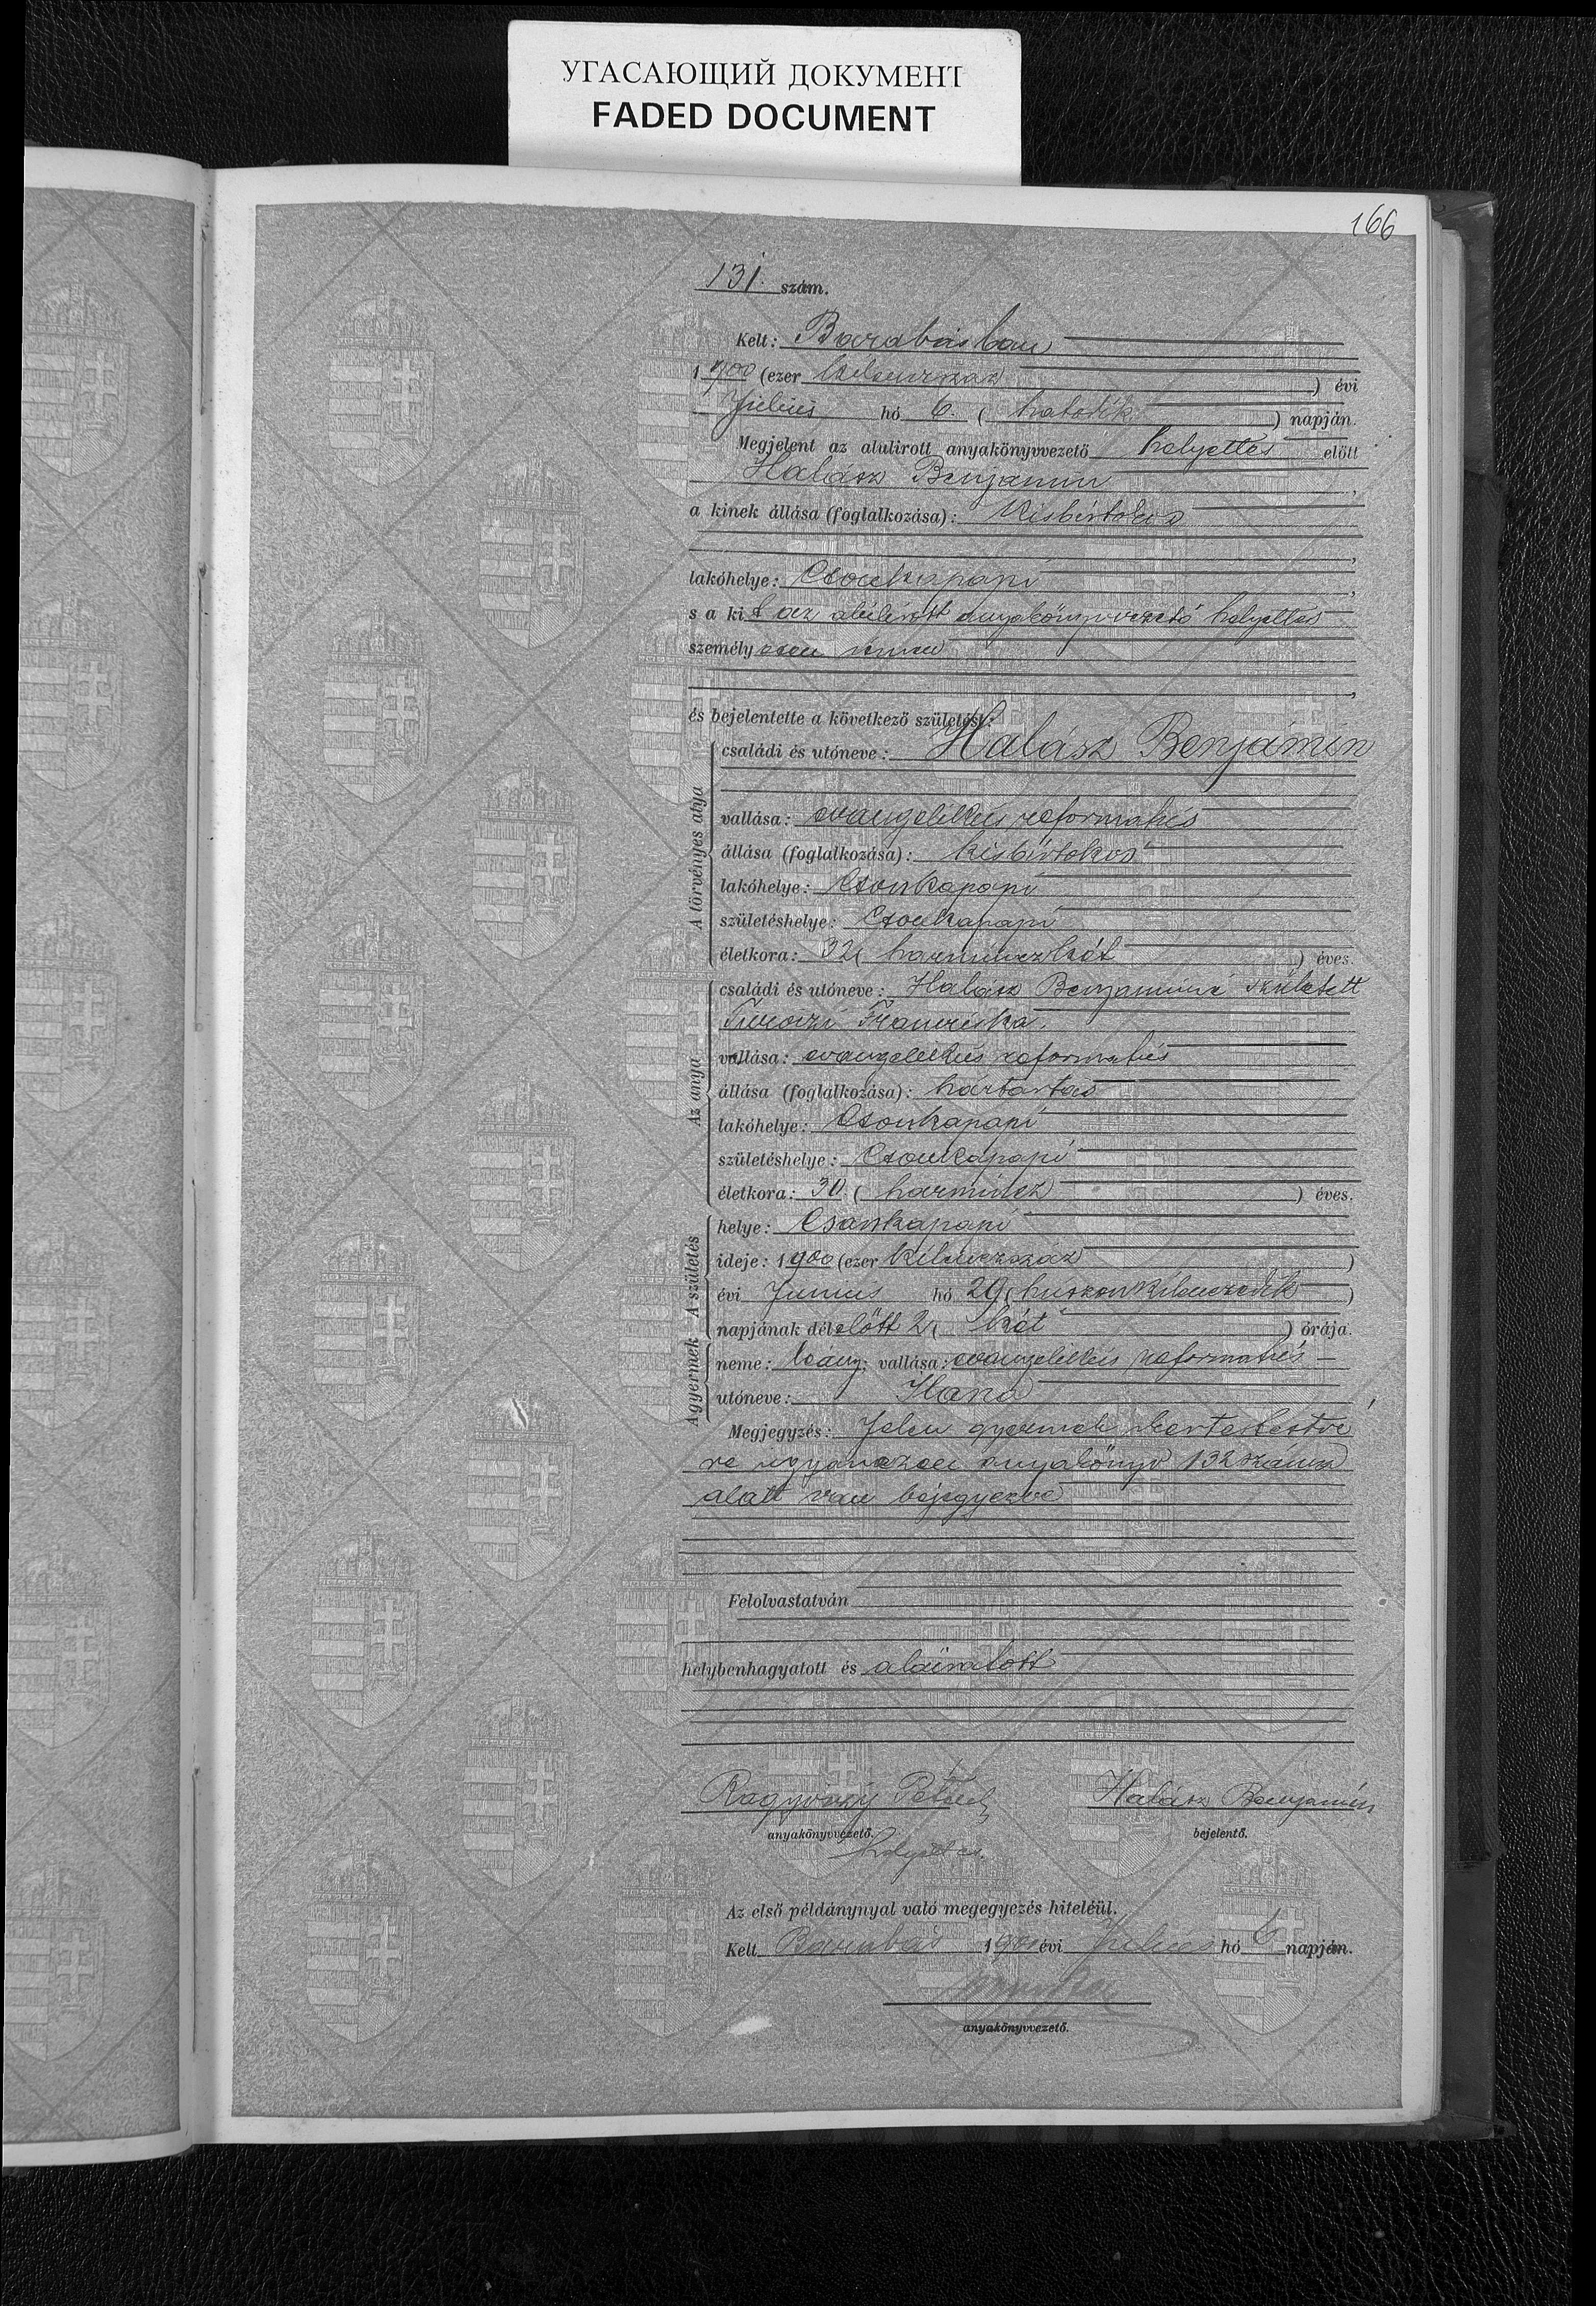 УГАСАЮЩИЙ ДОКУМЕНТ
FADED DOCUMENT
166
131. szám.
Kelt: Barabásban
1900 (ezer kilenczszáz) évi
Julius hó 6. (hatodik) napján.
Megjelent az alulirott anyakönyvvezető helyettes előtt
Halász Benjamin,
a kinek állása (foglalkozása): kisbirtokos
lakóhelye: Csonkapapi,
s a kit az alulirott anyakönyvvezető helyettes
személyesen ismer,
és bejelentette a következő születést:
A törvényes atya
családi és utóneve: Halász Benjámin
vallása: evangelikus reformatus
állása (foglalkozása): kisbirtokos
lakóhelye: Csonkapapi
születéshelye: Csonkapapi
életkora: 32 (harminczkét) éves.
Az anya
családi és utóneve: Halász Benjaminné született
Turoczi Francziska.
vallása: evangelikus reformatus
állása (foglalkozása): háztartás
lakóhelye: Csonkapapi
születéshelye: Csonkapapi
életkora: 30. (harmincz) éves.
A születés
helye: Csonkapapi
ideje: 1900 (ezer kilenczszáz)
évi Junius hó 29 (huszonkilenczedik)
napjának délelőtt 2 (két) órája.
A gyermek
neme: leány; vallása: evangelikus reformatus
utóneve: Ilona,
Megjegyzés: Jelen gyermek ikertestve
re ugyanezen anyakönyv 132 száma
alatt van bejegyezve
Felolvastatván
helybenhagyatott és aláiratott
Halász Benjamin
anyakönyvvezető. bejelentő.
helyettes.
Az első példánynyal való megegyezés hiteléül.
Kelt Barabás 1900 évi Julius hó 6 napján.
anyakönyvvezető.